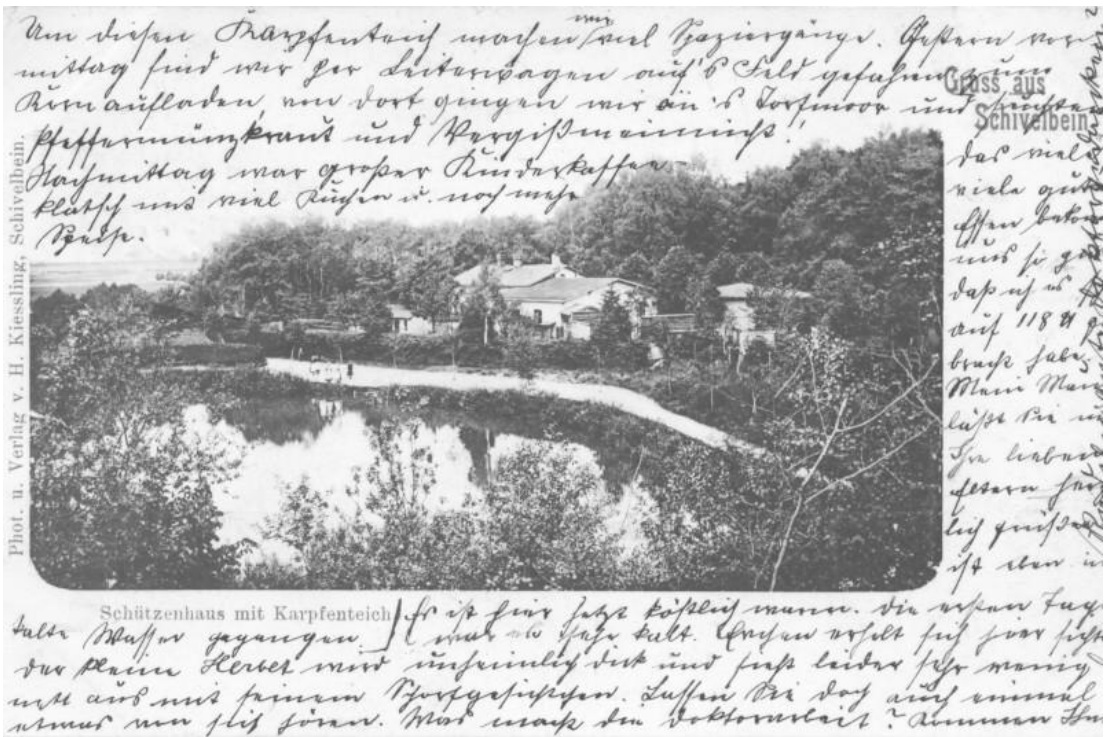 Um diesen Karpfenteich machen wir viel Spaziergänge. Gestern vor-
mittag sind wir per Leiterwagen auf's Feld gefahren zum
Korn aufladen, von dort gingen wir in's Torfmoor und suchten
Pfeffermünzkraut und Vergißmeinnicht!
Nachmittag war großer Kinderkaffee-
klatsch mit viel Kuchen u. noch mehr
Speise.
Gruss aus
Schivelbein
das viel
viele gute
Essen bekom
uns so gu
daß ich es
auf 118 ℔ ge
bracht habe.
Mein Mann
läßt Sie u
Ihre lieben
Eltern herz
lich grüßen
ist eben in
Phot. u. Verlag v. H. Kiessling, Schivelbein.
Schützenhaus mit Karpfenteich
kalte Wasser gegangen
Es ist hier jetzt köstlich warm. Die ersten Tage
war es sehr kalt. erholt sich hier sicht
der kleine wird unheimlich dick und sieht leider sehr wenig
nett aus mit seinem Schorfgesichtchen. Lassen Sie doch auch einmal
etwas von sich hören. Was macht die Doktorarbeit? Kommen Ihne